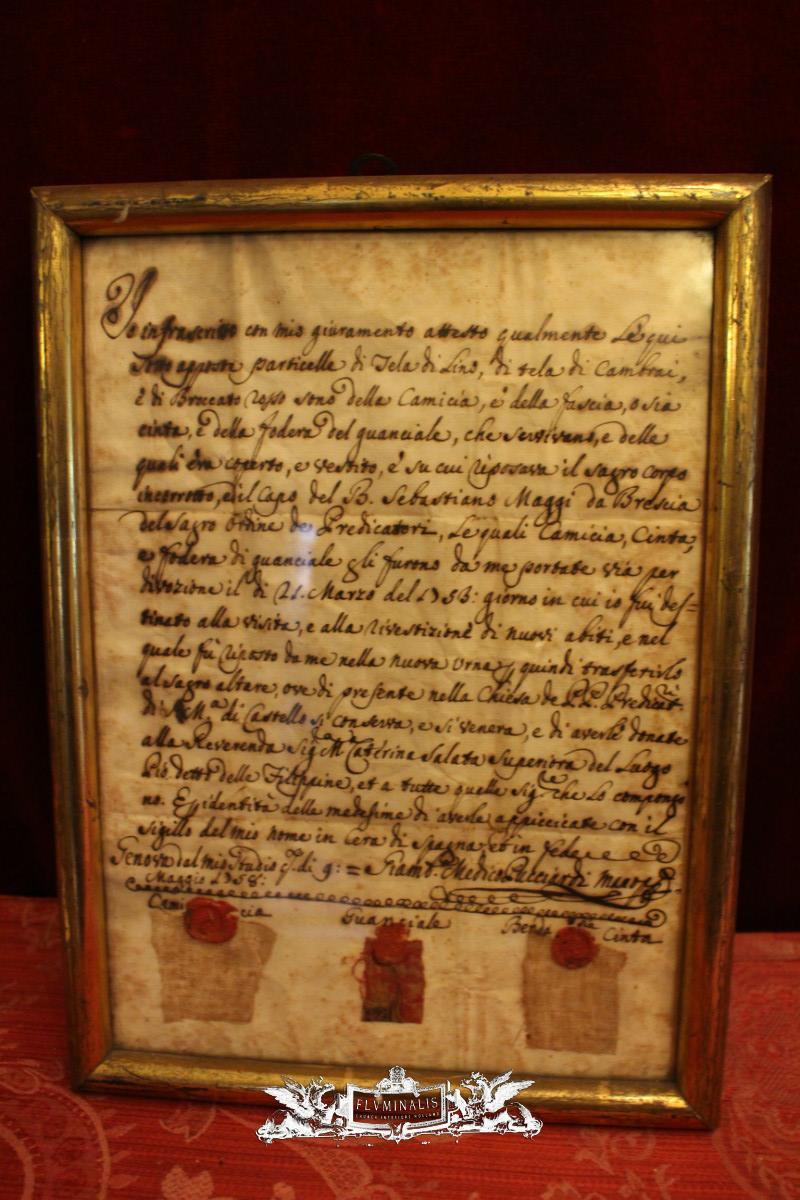 Io infrascritto con mio giuramento attesto qualmente Le qui
sotto apposte particelle di Tela di Lino, di tela di Cambrai,
è di Broccato rosso sono della Camicia, e della fascia, o sia
cinta, e della fodera del guanciale, che servivano, e delle
quali era coperto, e vestito, e su cui riposava il sagro corpo
incorrotto, ed il Capo del B. Sebastiano Maggi da Brescia
del sagro ordine de Predicatori, Le quali Camicia, Cinta,
e fodera di guanciale gli furono da me portate via per
divozione il di 21. Marzo del 1753: giorno in cui io fui des=
tinato alla visita, e alla rivestizione di nuovi abiti, e nel
quale fù riposto da me nella nuova Urna, quindi trasferirlo
al sagro altare, ove di presente nella Chiesa de P.P. Predicat.
di S. Ma. di Castello si conserva, e si venera, e di averle donate
alla Reverenda Sigra. Ma. Catterina Salata Superiora del Luogo
Pio detto delle Filippine, et a tutte quelle Sigre. che Lo compongo
no. E identità delle medesime di averle appiccicate con il
sigillo del mio nome in Cera di Spagna, et in fede
Genova dal mio Studio di 9: Giamb. Medico Pucciardi
Maggio 1758:
Camicia Guanciale Cinta
FLVMINALIS
CHURCH INTERIORS HOLLAND